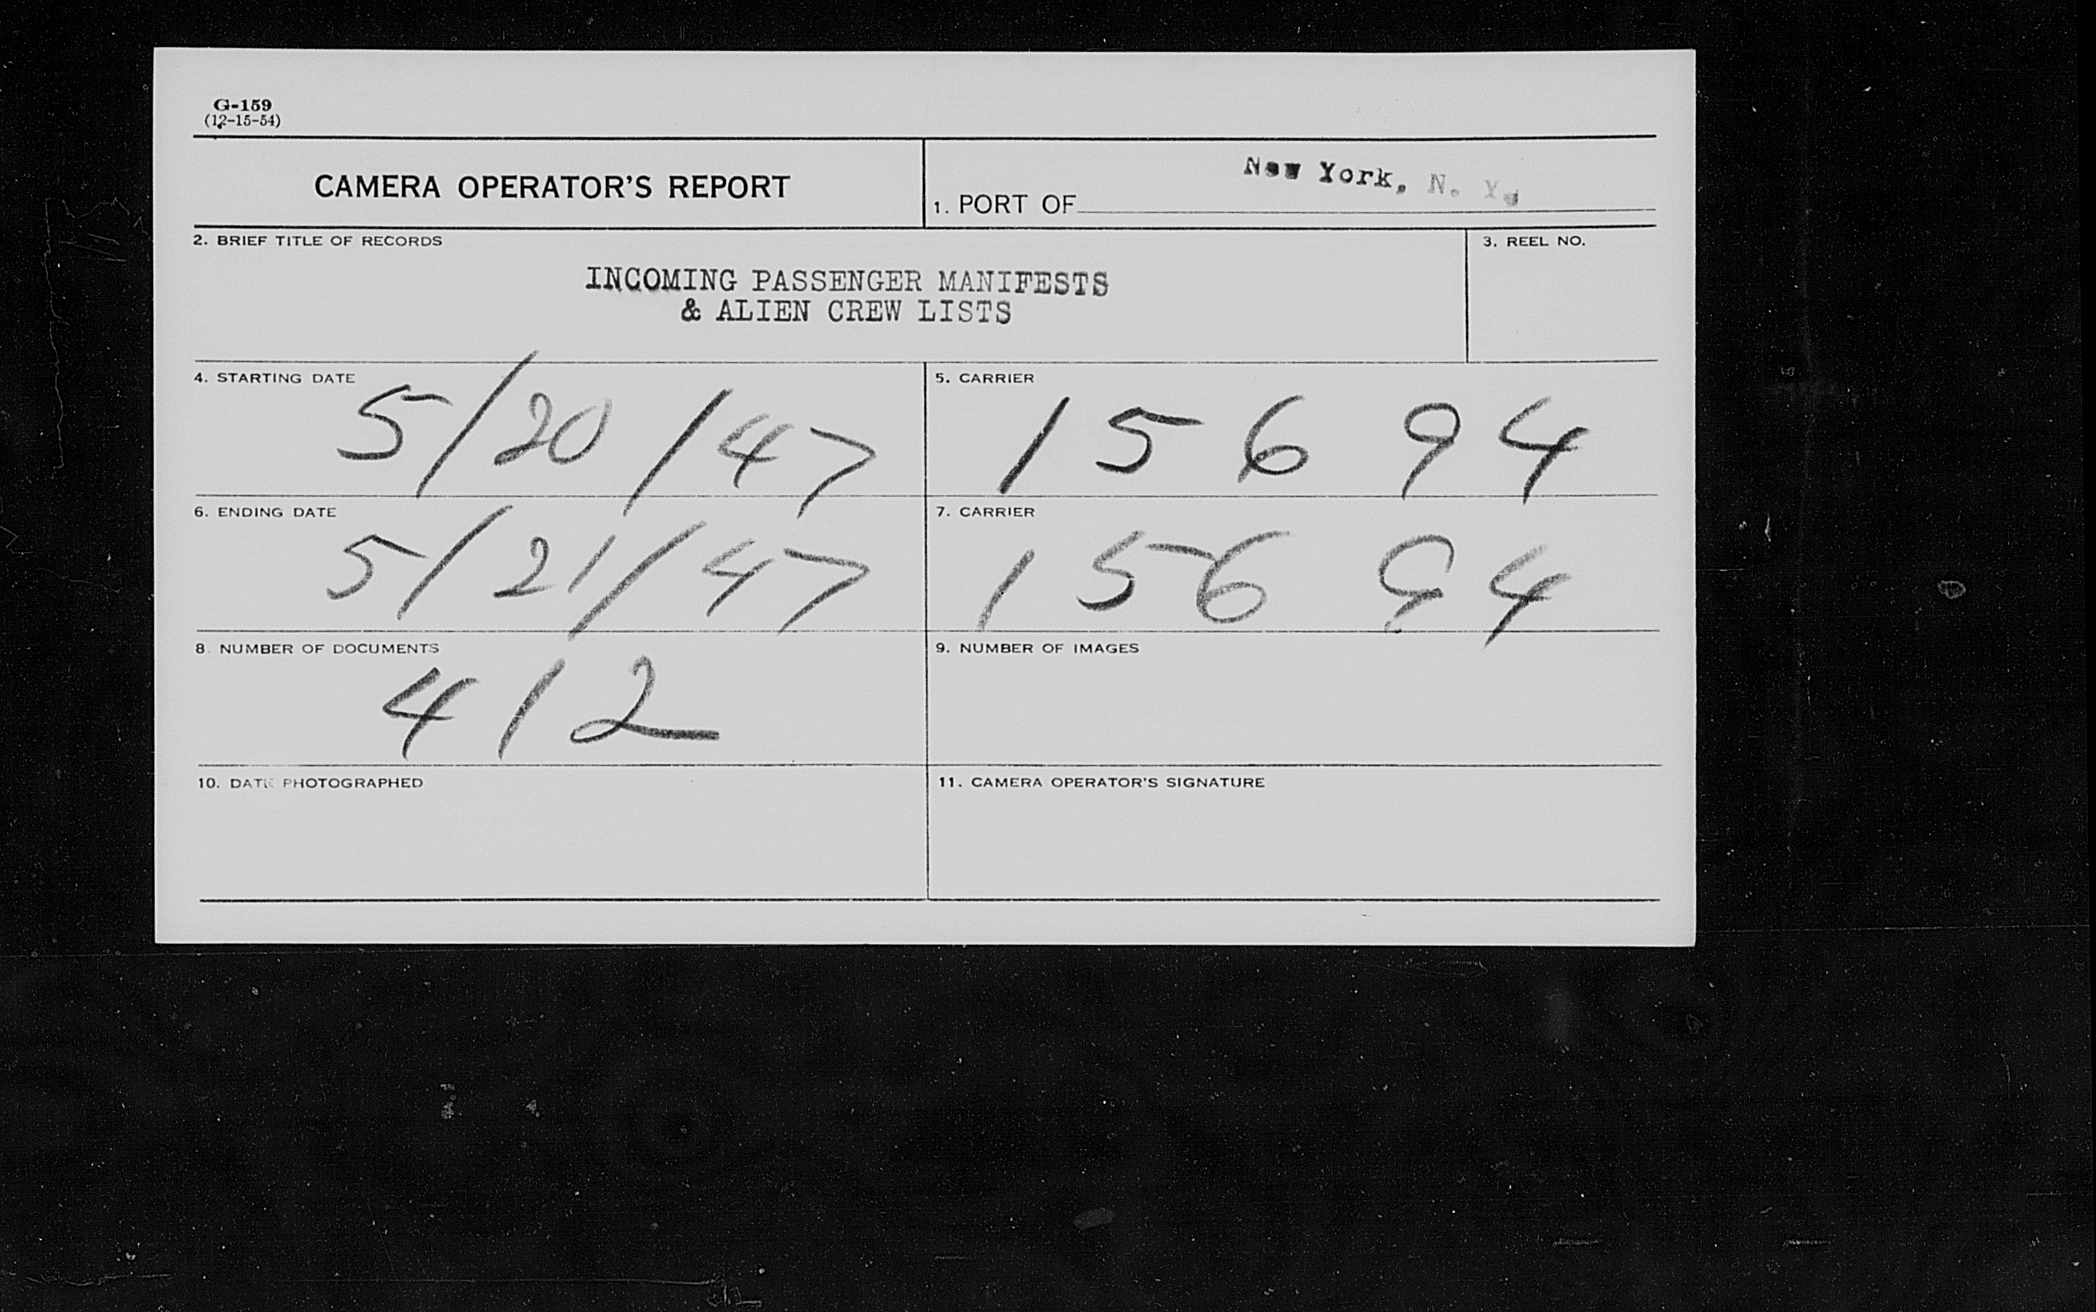 G-159
(12-15-54)
CAMERA OPERATOR'S REPORT
1. PORT OF New York, N. Y.
2. BRIEF TITLE OF RECORDS
3. REEL NO.
INCOMING PASSENGER MANIFESTS
& ALIEN CREW LISTS
4. STARTING DATE
5/20/47
5. CARRIER
15694
6. ENDING DATE
5/21/47
7. CARRIER
15694
8. NUMBER OF DOCUMENTS
412
9. NUMBER OF IMAGES
10. DATE PHOTOGRAPHED
11. CAMERA OPERATOR'S SIGNATURE